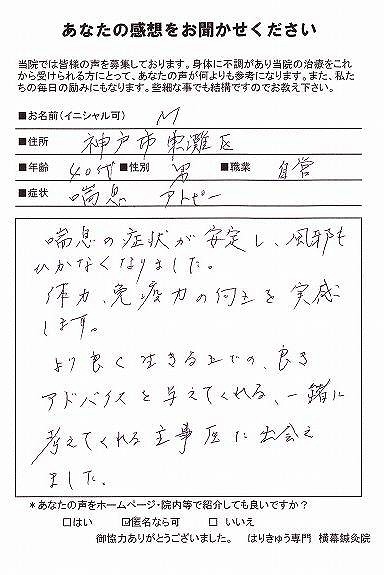 あなたの感想をお聞かせください
当院では皆様の声を募集しております。身体に不調があり当院の治療をこれ
から受けられる方にとって、あなたの声が何よりも参考になります。また、私た
ちの毎日の励みにもなります。些細な事でも結構ですのでお教え下さい。
■お名前(イニシャル可) M
■住所 神戸市東灘区
■年齢 40代 ■性別 男 ■職業 自営
■症状 喘息 アトピー
喘息の症状が安定し、風邪も
ひかなくなりました。
体力、免疫力の向上を実感
します。
より良く生きる上での、良き
アドバイスを与えてくれる、一緒に
考えてくれる主事医に出会え
ました。
*あなたの声をホームページ・院内等で紹介しても良いですか?
□はい ☑匿名なら可 □ いいえ
御協力ありがとうございました。 はりきゅう専門 横幕鍼灸院